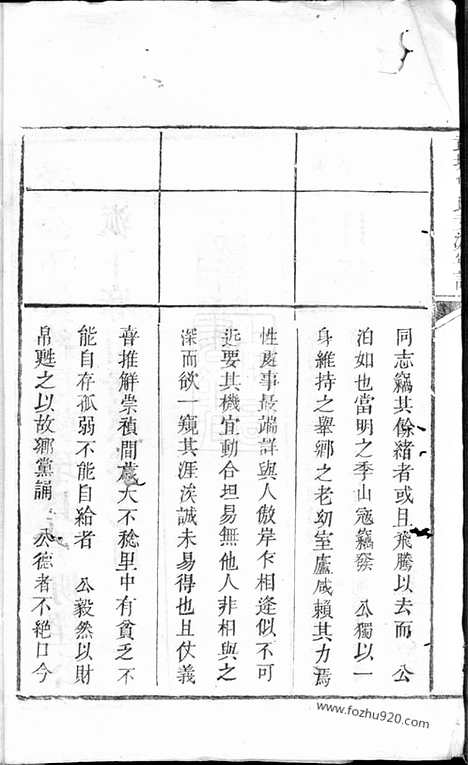 同志竊其餘緒者或且飛騰以去而 公
泊如也當明之季山寇竊發 公獨以一
身維持之舉鄉之老幼室廬咸賴其力焉
性處事最端詳與人傲岸乍相逢似不可
近要其機宜動合坦易無他人非相與之
深而欲一窺其涯涘誠未易得也且仗義
喜推解崇禎間 大不稔里中有貧乏不
能自存孤弱不能自給者 公毅然以財
帛甦之以故鄉黨誦 公德者不絕口今
www.fozhu920.com